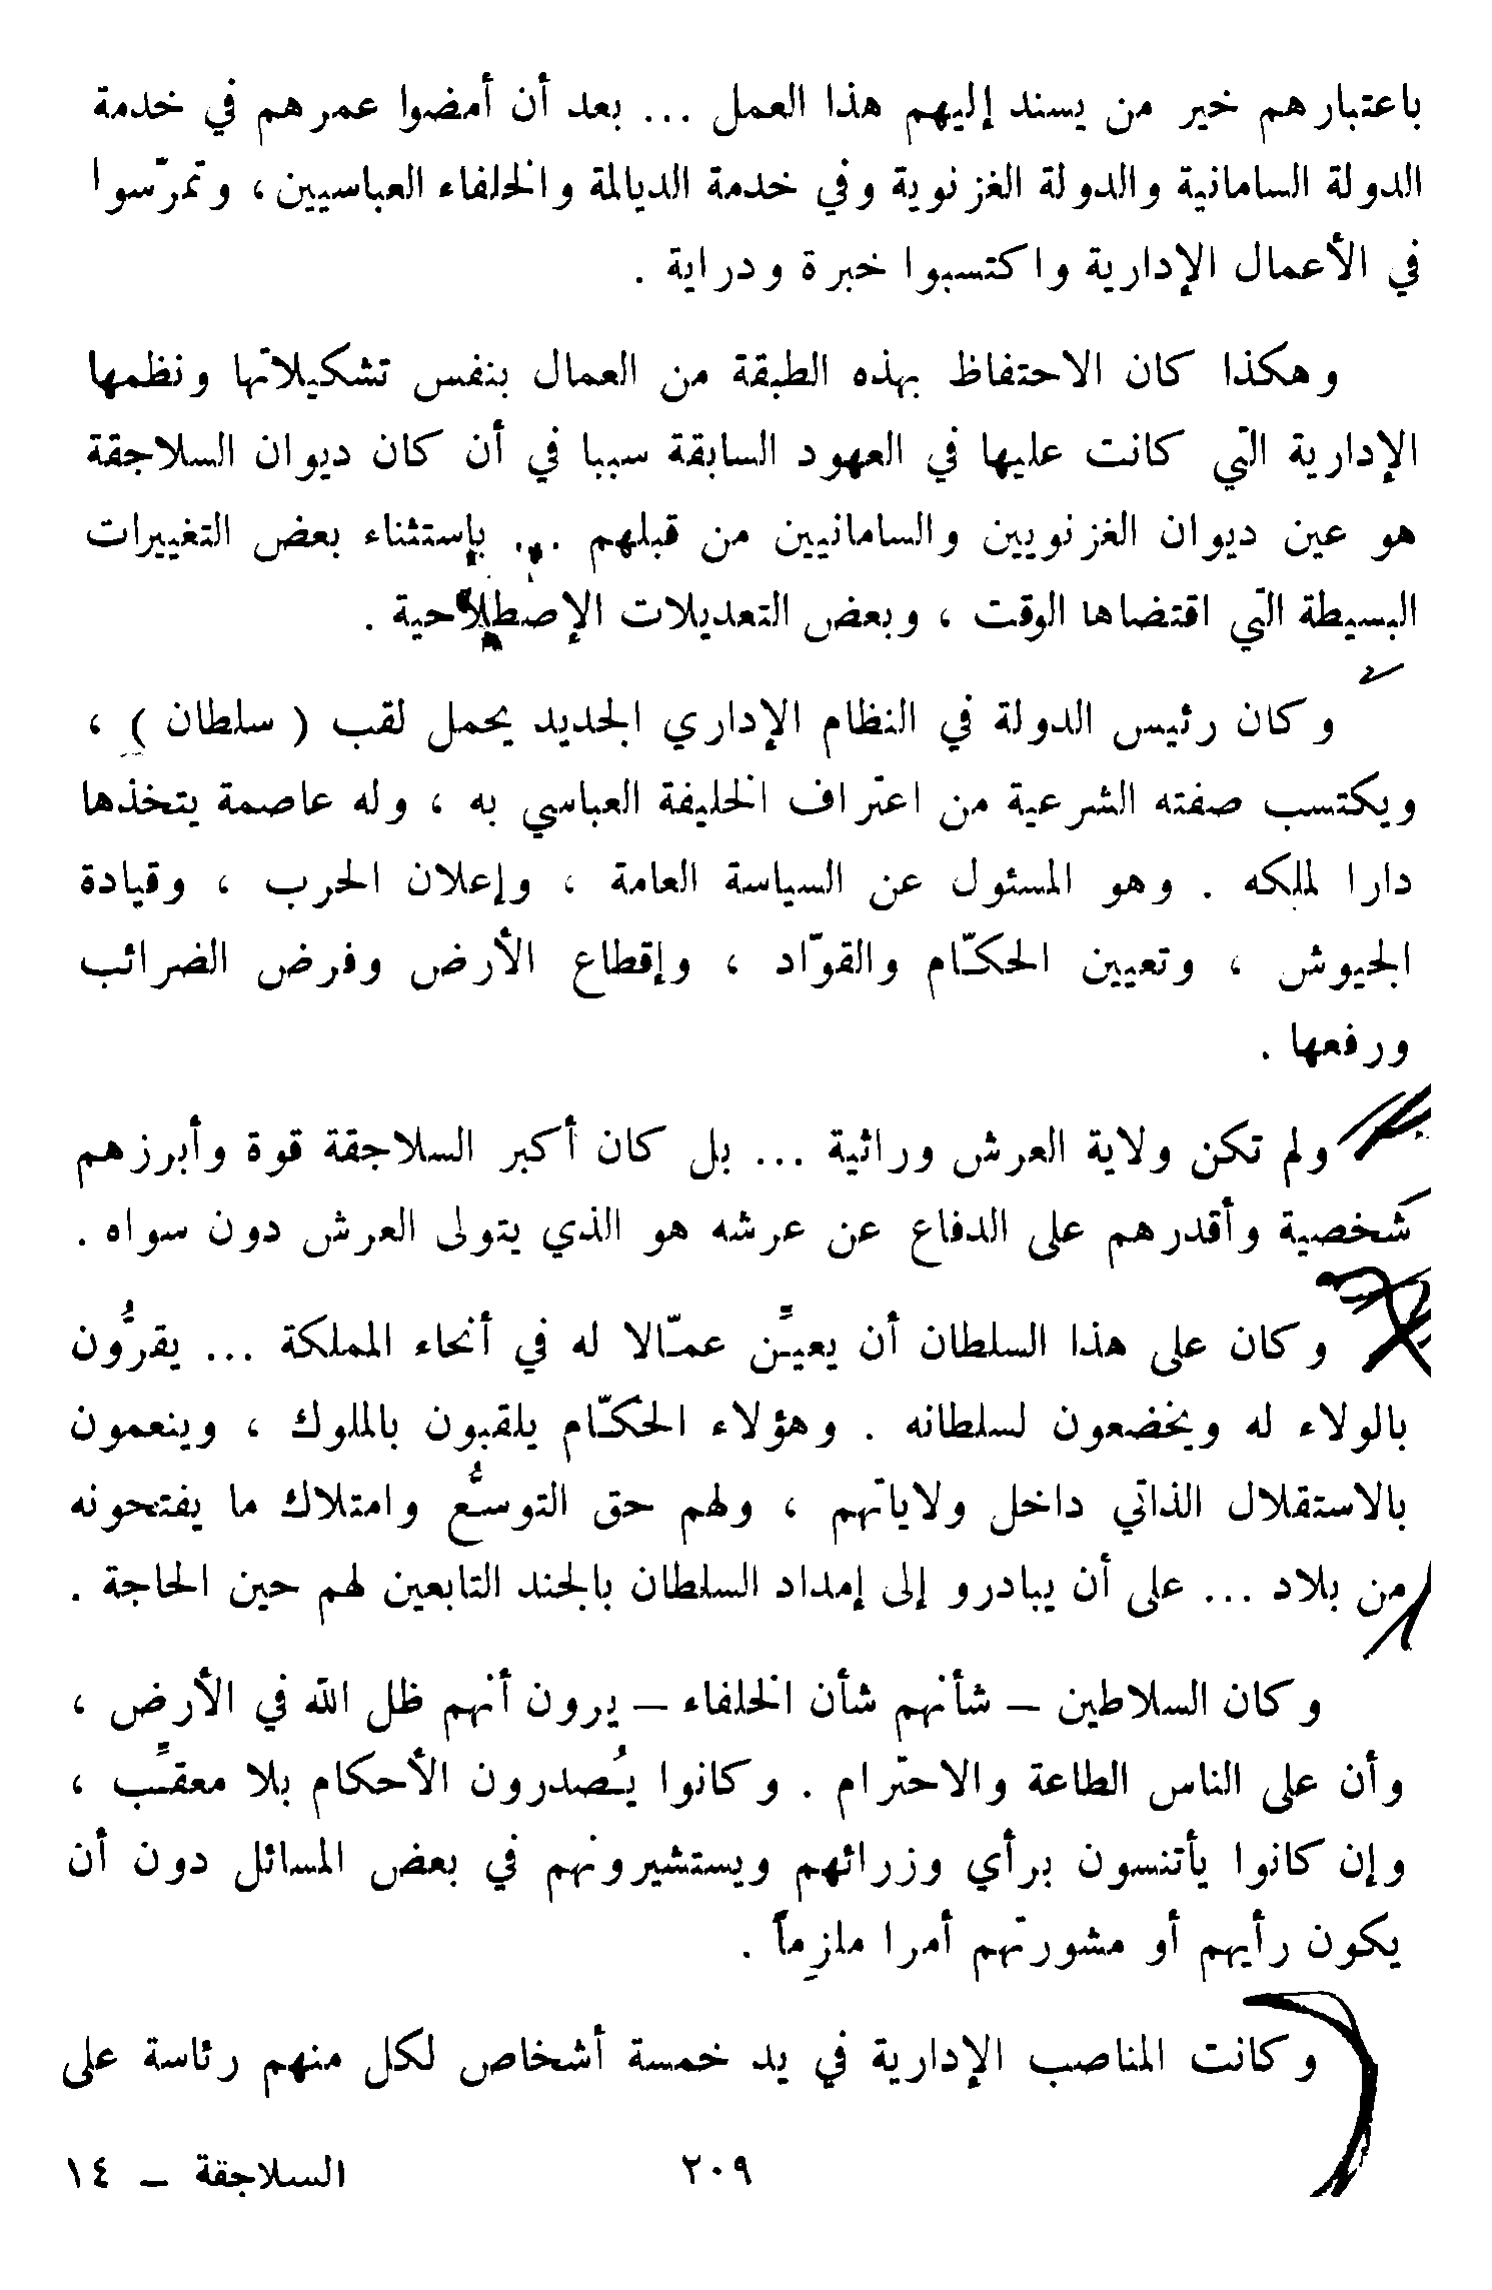 باعتبارهم خير من يسند إليهم هذا العمل ... بعد أن أمضوا عمرهم في خدمة
الدولة السامانية والدولة الغزنوية وفي خدمة الديالمة والخلفاء العباسيين، وتمرّسوا
في الأعمال الإدارية واكتسبوا خبرة ودراية .
وهكذا كان الاحتفاظ بهذه الطبقة من العمال بنفس تشكيلاتها ونظمها
الإدارية التي كانت عليها في العهود السابقة سببا في أن كان ديوان السلاجقة
هو عين ديوان الغزنويين والسامانيين من قبلهم ... بإستثناء بعض التغييرات
البسيطة التي اقتضاها الوقت ، وبعض التعديلات الإصطلاحية .
وكان رئيس الدولة في النظام الإداري الجديد يحمل لقب ( سلطان ) ،
ويكتسب صفته الشرعية من اعتراف الخليفة العباسي به ، وله عاصمة يتخذها
دارا لملكه . وهو المسئول عن السياسة العامة ، وإعلان الحرب ، وقيادة
الجيوش ، وتعيين الحكّام والقوّاد ، وإقطاع الأرض وفرض الضرائب
ورفعها .
ولم تكن ولاية العرش وراثية ... بل كان أكبر السلاجقة قوة وأبرزهم
شخصية وأقدرهم على الدفاع عن عرشه هو الذي يتولى العرش دون سواه .
وكان على هذا السلطان أن يعيِّن عمّالا له في أنحاء المملكة ... يقرُّون
بالولاء له ويخضعون لسلطانه . وهؤلاء الحكّام يلقبون بالملوك ، وينعمون
بالاستقلال الذاتي داخل ولاياتهم ، ولهم حق التوسُّع وامتلاك ما يفتحونه
من بلاد ... على أن يبادرو إلى إمداد السلطان بالجند التابعين لهم حين الحاجة .
وكان السلاطين – شأنهم شأن الخلفاء – يرون أنهم ظل الله في الأرض ،
وأن على الناس الطاعة والاحترام . وكانوا يُصدرون الأحكام بلا معقِّب ،
وإن كانوا يأتنسون برأي وزرائهم ويستشيرونهم في بعض المسائل دون أن
يكون رأيهم أو مشورتهم أمرا ملزماً .
وكانت المناصب الإدارية في يد خمسة أشخاص لكل منهم رئاسة على
٢٠٩
السلاجقة – ١٤